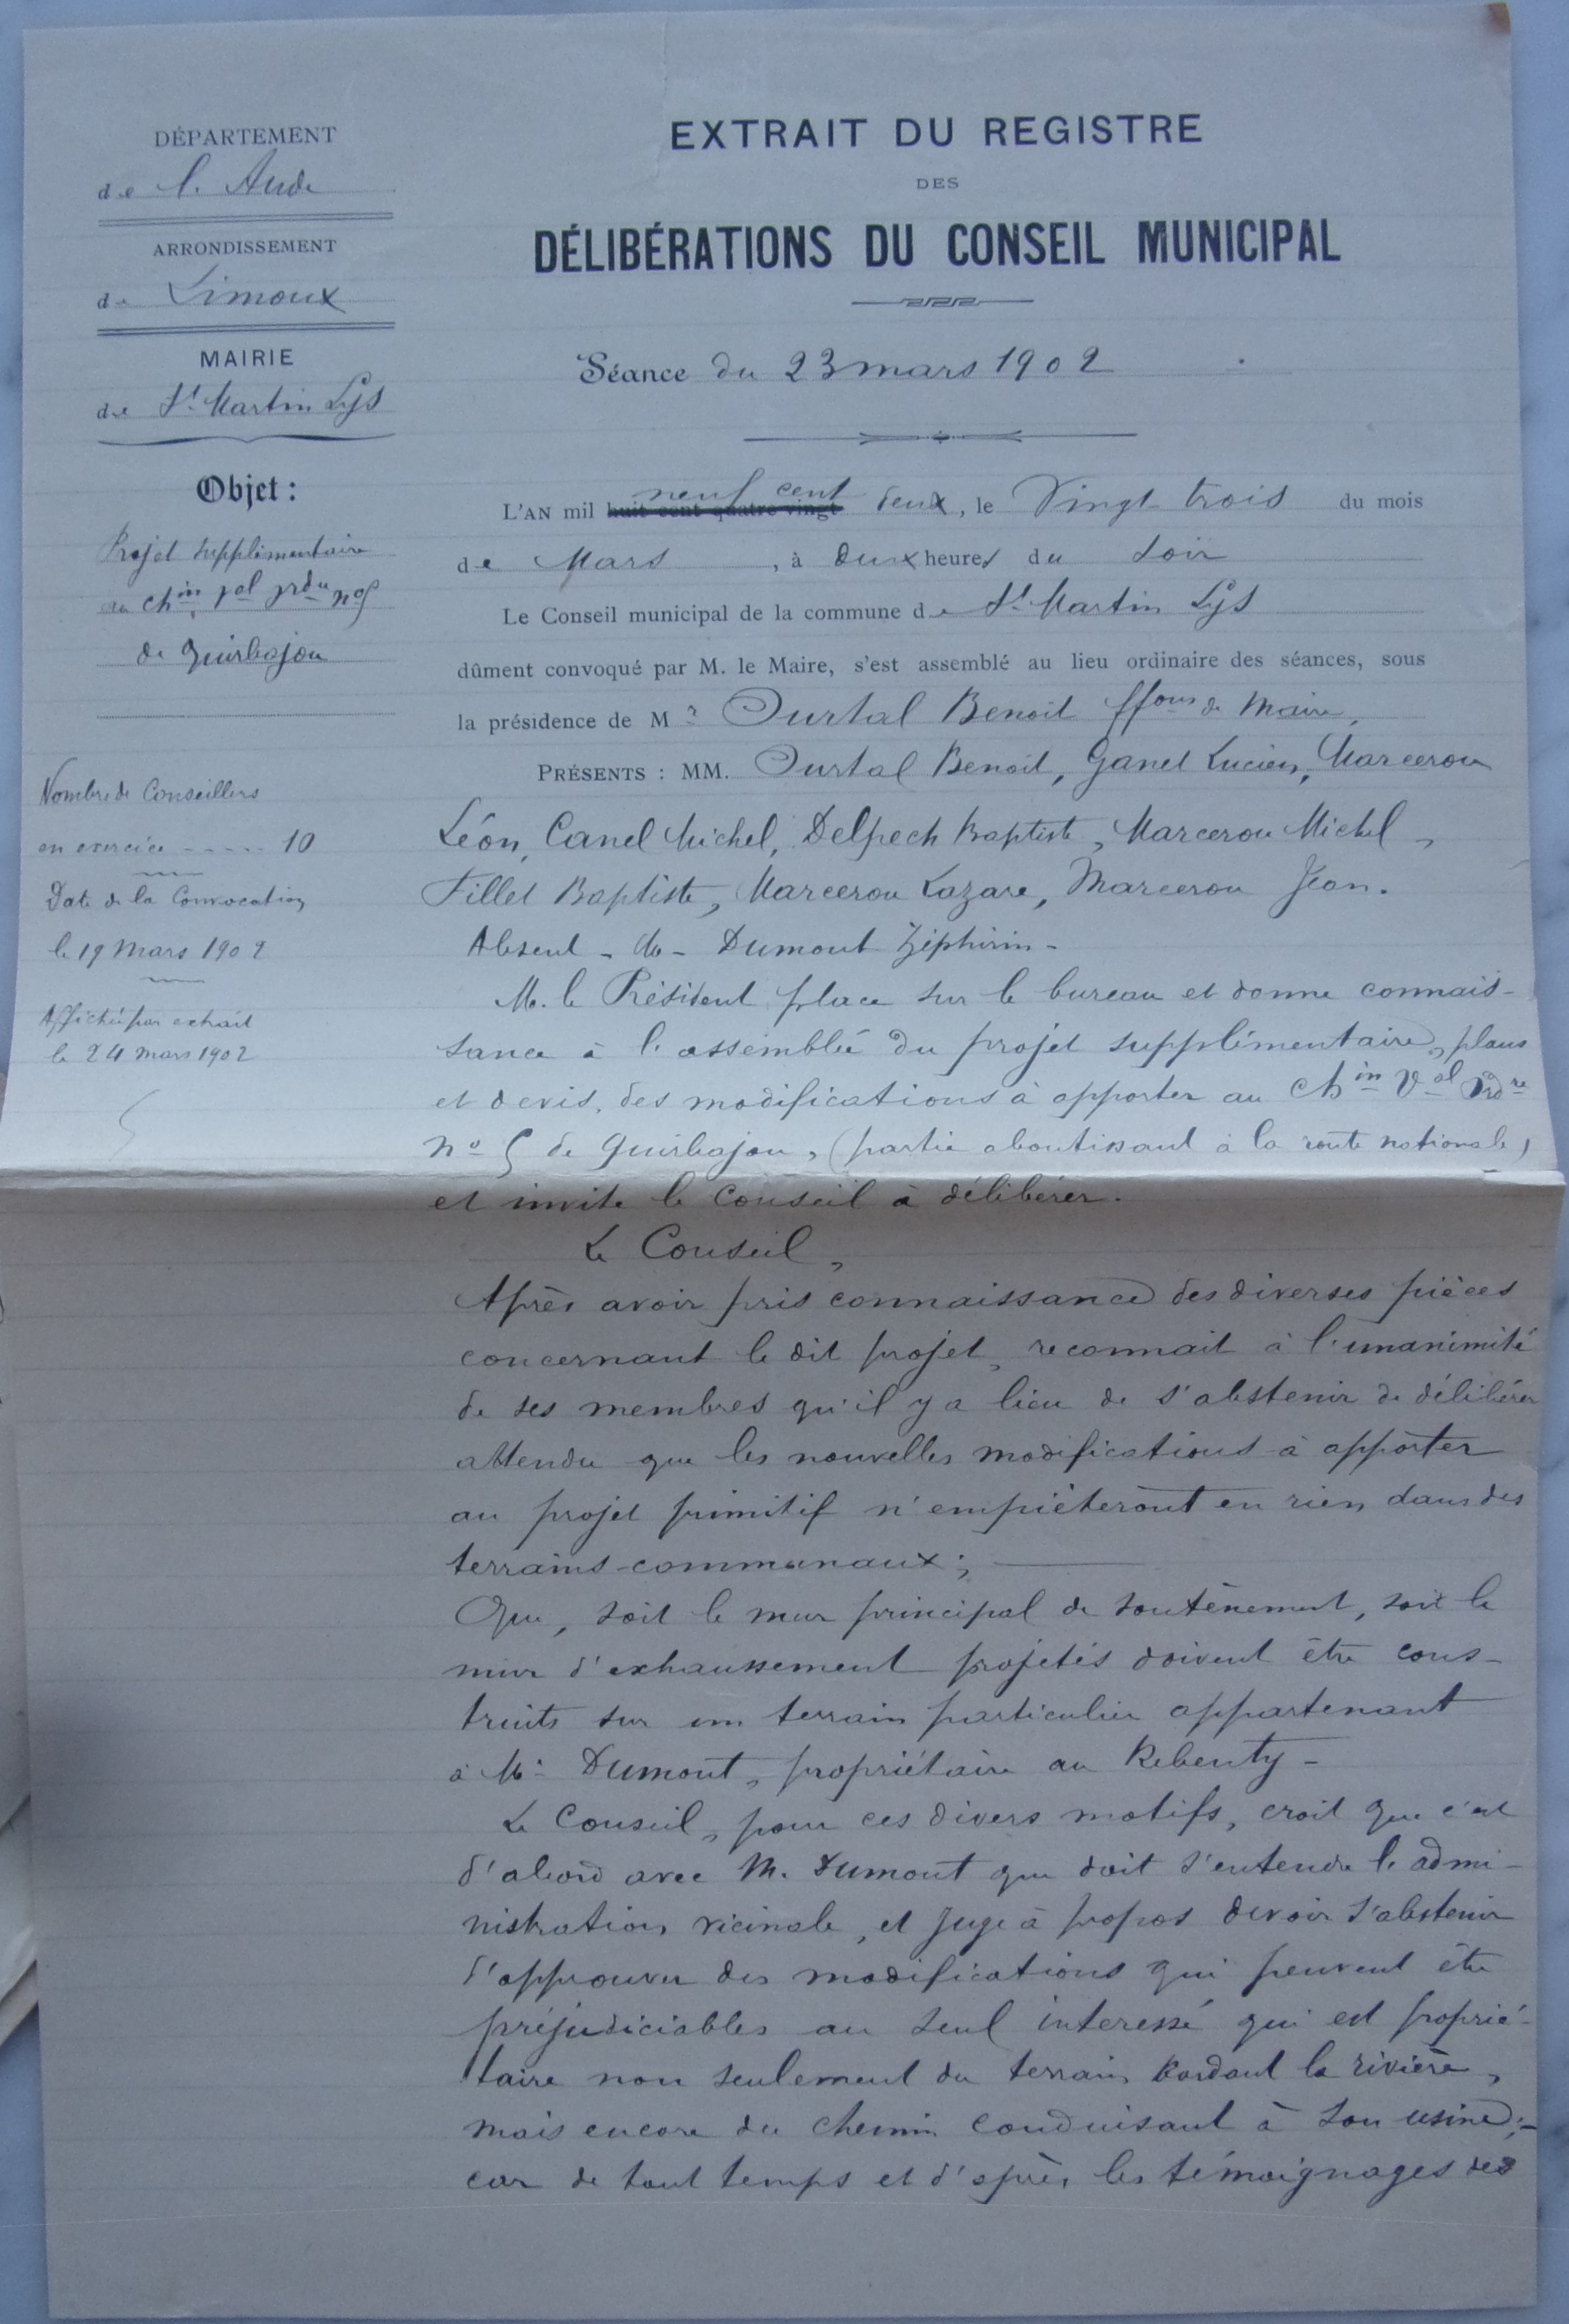 DÉPARTEMENT
de l'Aude
ARRONDISSEMENT
de Limoux
MAIRIE
de St Martin Lys
Objet :
Projet supplémentaire
au chin val ordre no 5
de Quirbajou
Nombre de Conseillers
en exercice ----- 10
Date de la Convocation
le 19 Mars 1902
Affiché par extrait
le 24 mars 1902
EXTRAIT DU REGISTRE
DES
DÉLIBÉRATIONS DU CONSEIL MUNICIPAL
Séance du 23 mars 1902
neuf cent
L'AN mil huit cent quatre-vingt deux, le Vingt trois du mois
de Mars, à deux heures du soir
Le Conseil municipal de la commune de St Martin Lys
dûment convoqué par M. le Maire, s'est assemblé au lieu ordinaire des séances, sous
la présidence de Mr Ourtal Benoit ffons de Maire,
PRÉSENTS : MM. Ourtal Benoit, Ganet Lucien, Marcerou
Léon, Canel Michel, Delpech Baptiste, Marcerou Michel,
Fillet Baptiste, Marcerou Lazare, Marcerou Jean.
Absent - M - Dumont Zéphirin -
M. le Président place sur le bureau et donne connais-
sance à l'assemblée du projet supplémentaire, plans
et devis, des modifications à apporter au Chin Val Ordre
no 5 de Quirbajou, (partie aboutissant à la route nationale)
et invite le Conseil à délibérer.
Le Conseil,
Après avoir pris connaissance des diverses pièces
concernant le dit projet, reconnait à l'unanimité
de ses membres qu'il y a lieu de s'abstenir de délibérer
attendu que les nouvelles modifications à apporter
au projet primitif n'empièteront en rien dans des
terrains communaux ;
Que, soit le mur principal de soutènement, soit le
mur d'exhaussement projetés doivent être cons-
truits sur un terrain particulier appartenant
à Mr Dumont, propriétaire au Rebenty -
Le Conseil, pour ces divers motifs, croit que c'est
d'abord avec M. Dumont que doit s'entendre l'admi-
nistration vicinale, et juge à propos devoir s'abstenir
d'approuver des modifications qui peuvent être
préjudiciables au seul interessé qui est proprié-
taire non seulement du terrain bordant la rivière,
mais encore du chemin conduisant à son usine ;-
car de tout temps et d'après les témoignages des